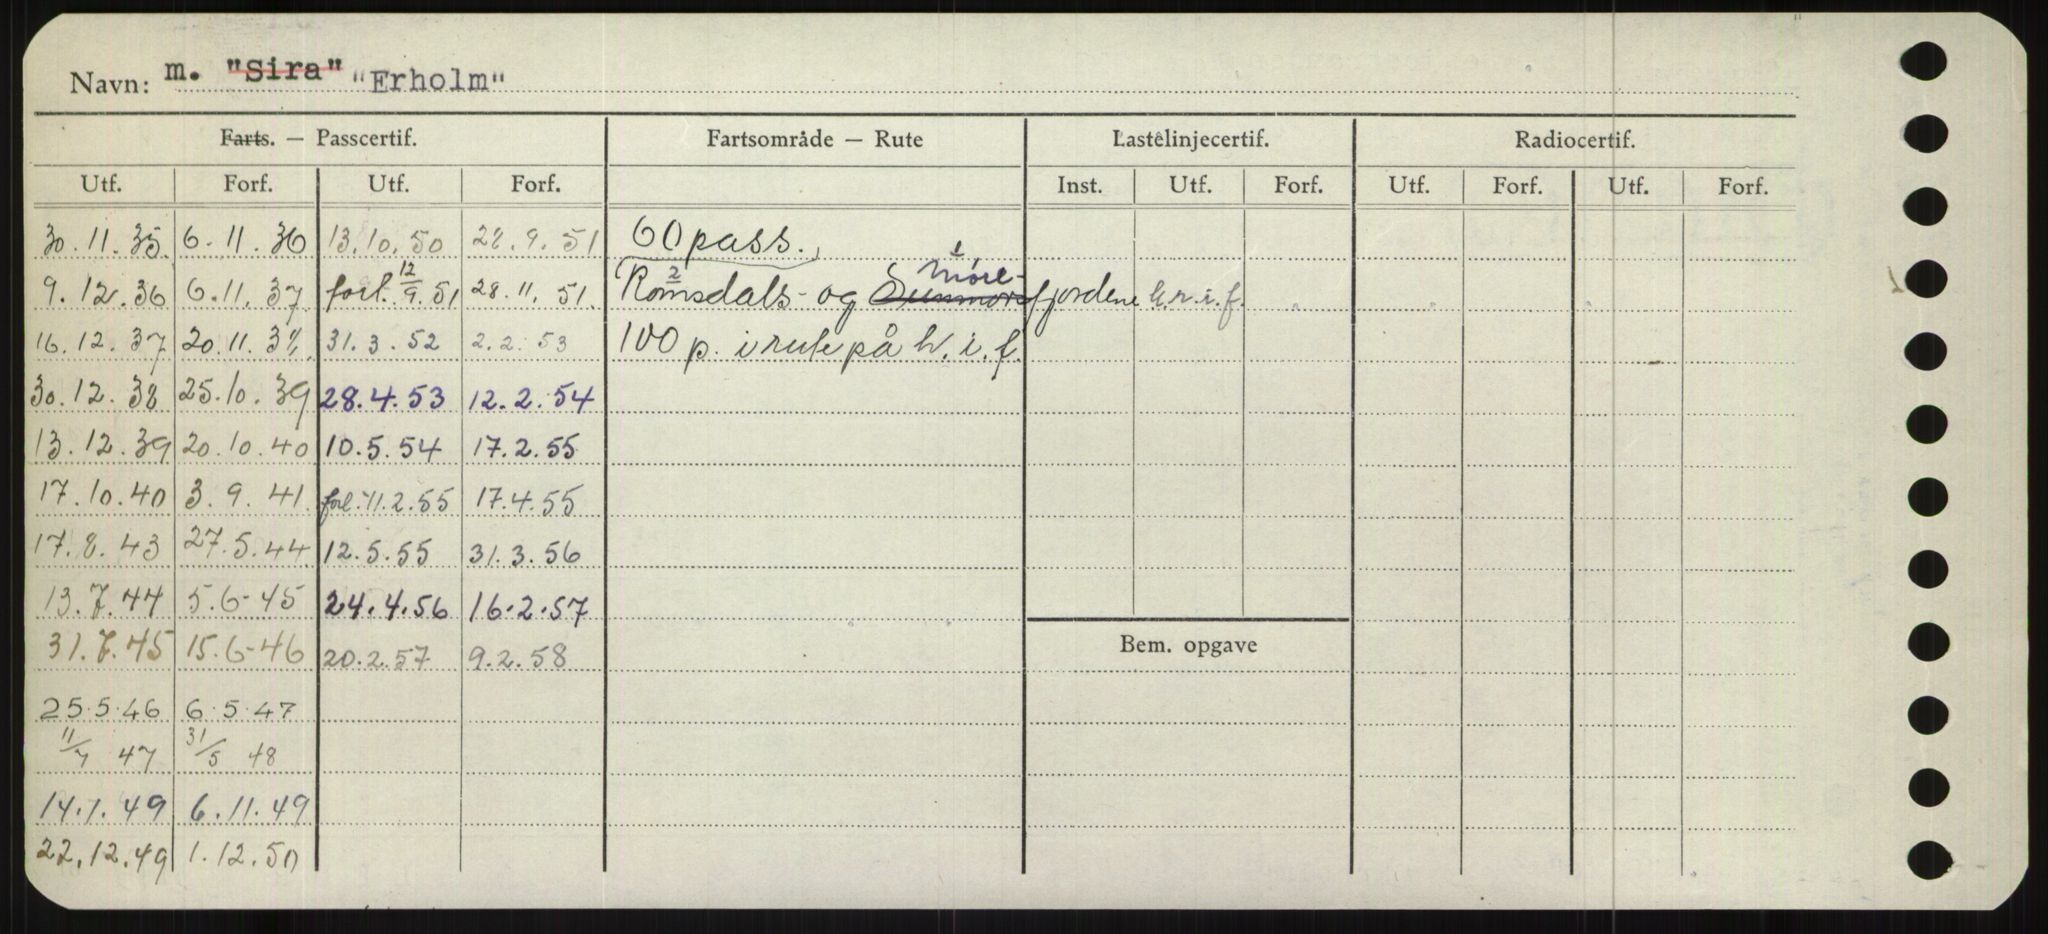 Navn: m. "Sira" "Erholm"
Farts. — Passcertif. Fartsområde — Rute Lastelinjecertif. Radiocertif.
Utf. Forf. Utf. Forf. Inst. Utf. Forf. Utf. Forf. Utf. Forf.
30.11.35. 6.11.36 13.10.50 28.9.51 60 pass.
9.12.36 6.11.37 forl. 12/9.51 28.11.51. Romsdals- 2 og Sunmørs Møre- 1 fjordene h.r.i.f.
16.12.37 20.11.38. 31.3.52 2.2.53 100 p. i rute på h.i.f.
30.12.38 25.10.39 28.4.53 12.2.54
13.12.39 20.10.40 10.5.54 17.2.55
17.10.40 3.9.41. forl. 11.2.55 17.4.55
17.8.43 27.5.44. 12.5.55 31.3.56
13.7.44 5.6-45 24.4.56 16.2.57
31.7.45 15.6-46 20.2.57 9.2.58
Bem. opgave
25.5.46 6.5.47
11/7 47 31/5 48
14.1.49 6.11.49
22.12.49 1.12.50